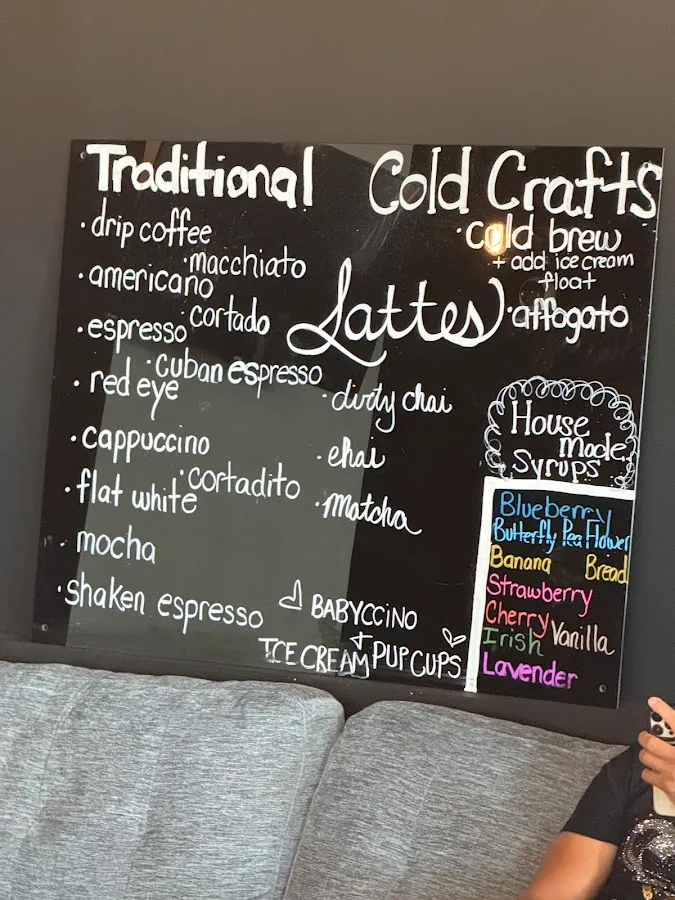 Traditional
· drip coffee
· macchiato
· americano
· cortado
· espresso
· cuban espresso
· red eye
· cappuccino
· cortadito
· flat white
· mocha
· shaken espresso
Lattes
· dirty chai
· chai
· Matcha
BABYCCINO
+
ICE CREAM PUP CUPS
Cold Crafts
· cold brew
+ add ice cream
float
· affogato
House
Made
Syrups
Blueberry
Butterfly Pea Flower
Banana Bread
Strawberry
Cherry
Vanilla
Irish
Lavender